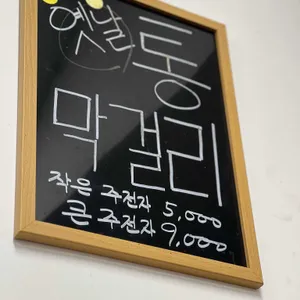 옛날
통
막걸리
작은 주전자 5,000
큰 주전자 9,000